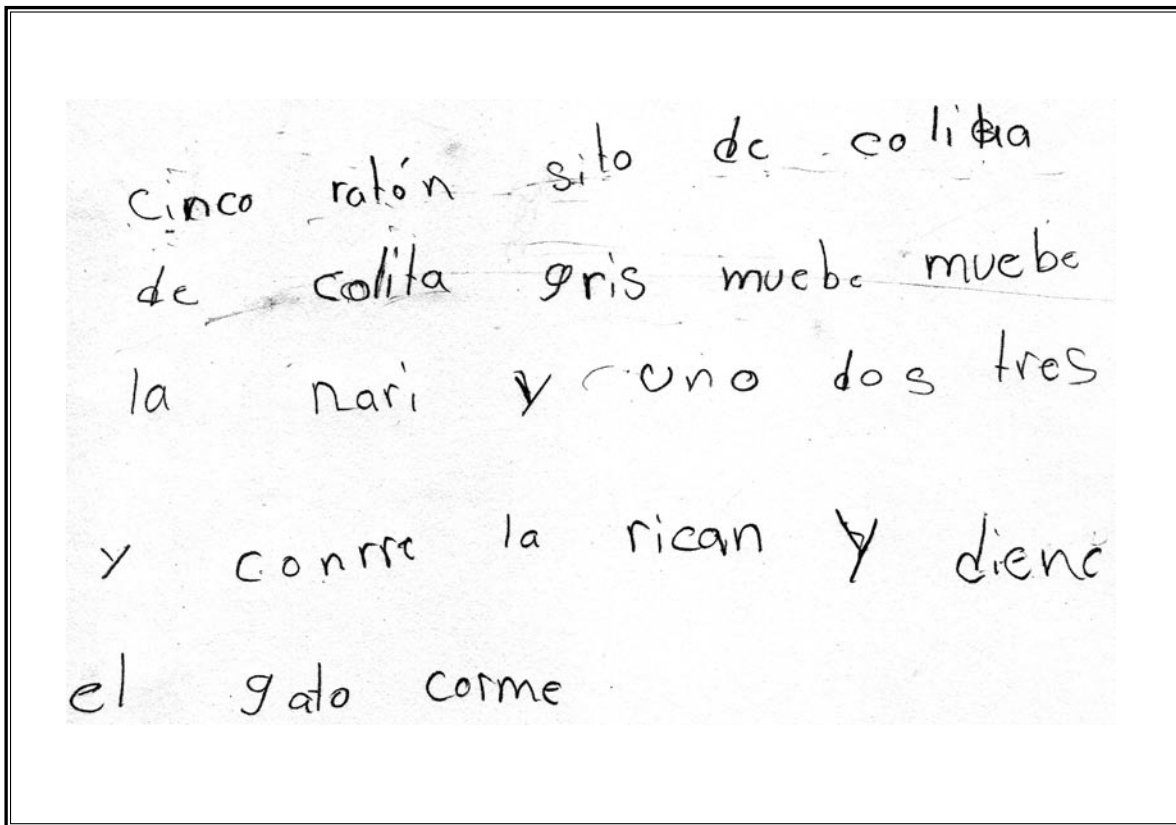 cinco ratón sito de colita
de colita gris muebe muebe
la nari y uno dos tres
y conrre la rican y diene
el gato corme